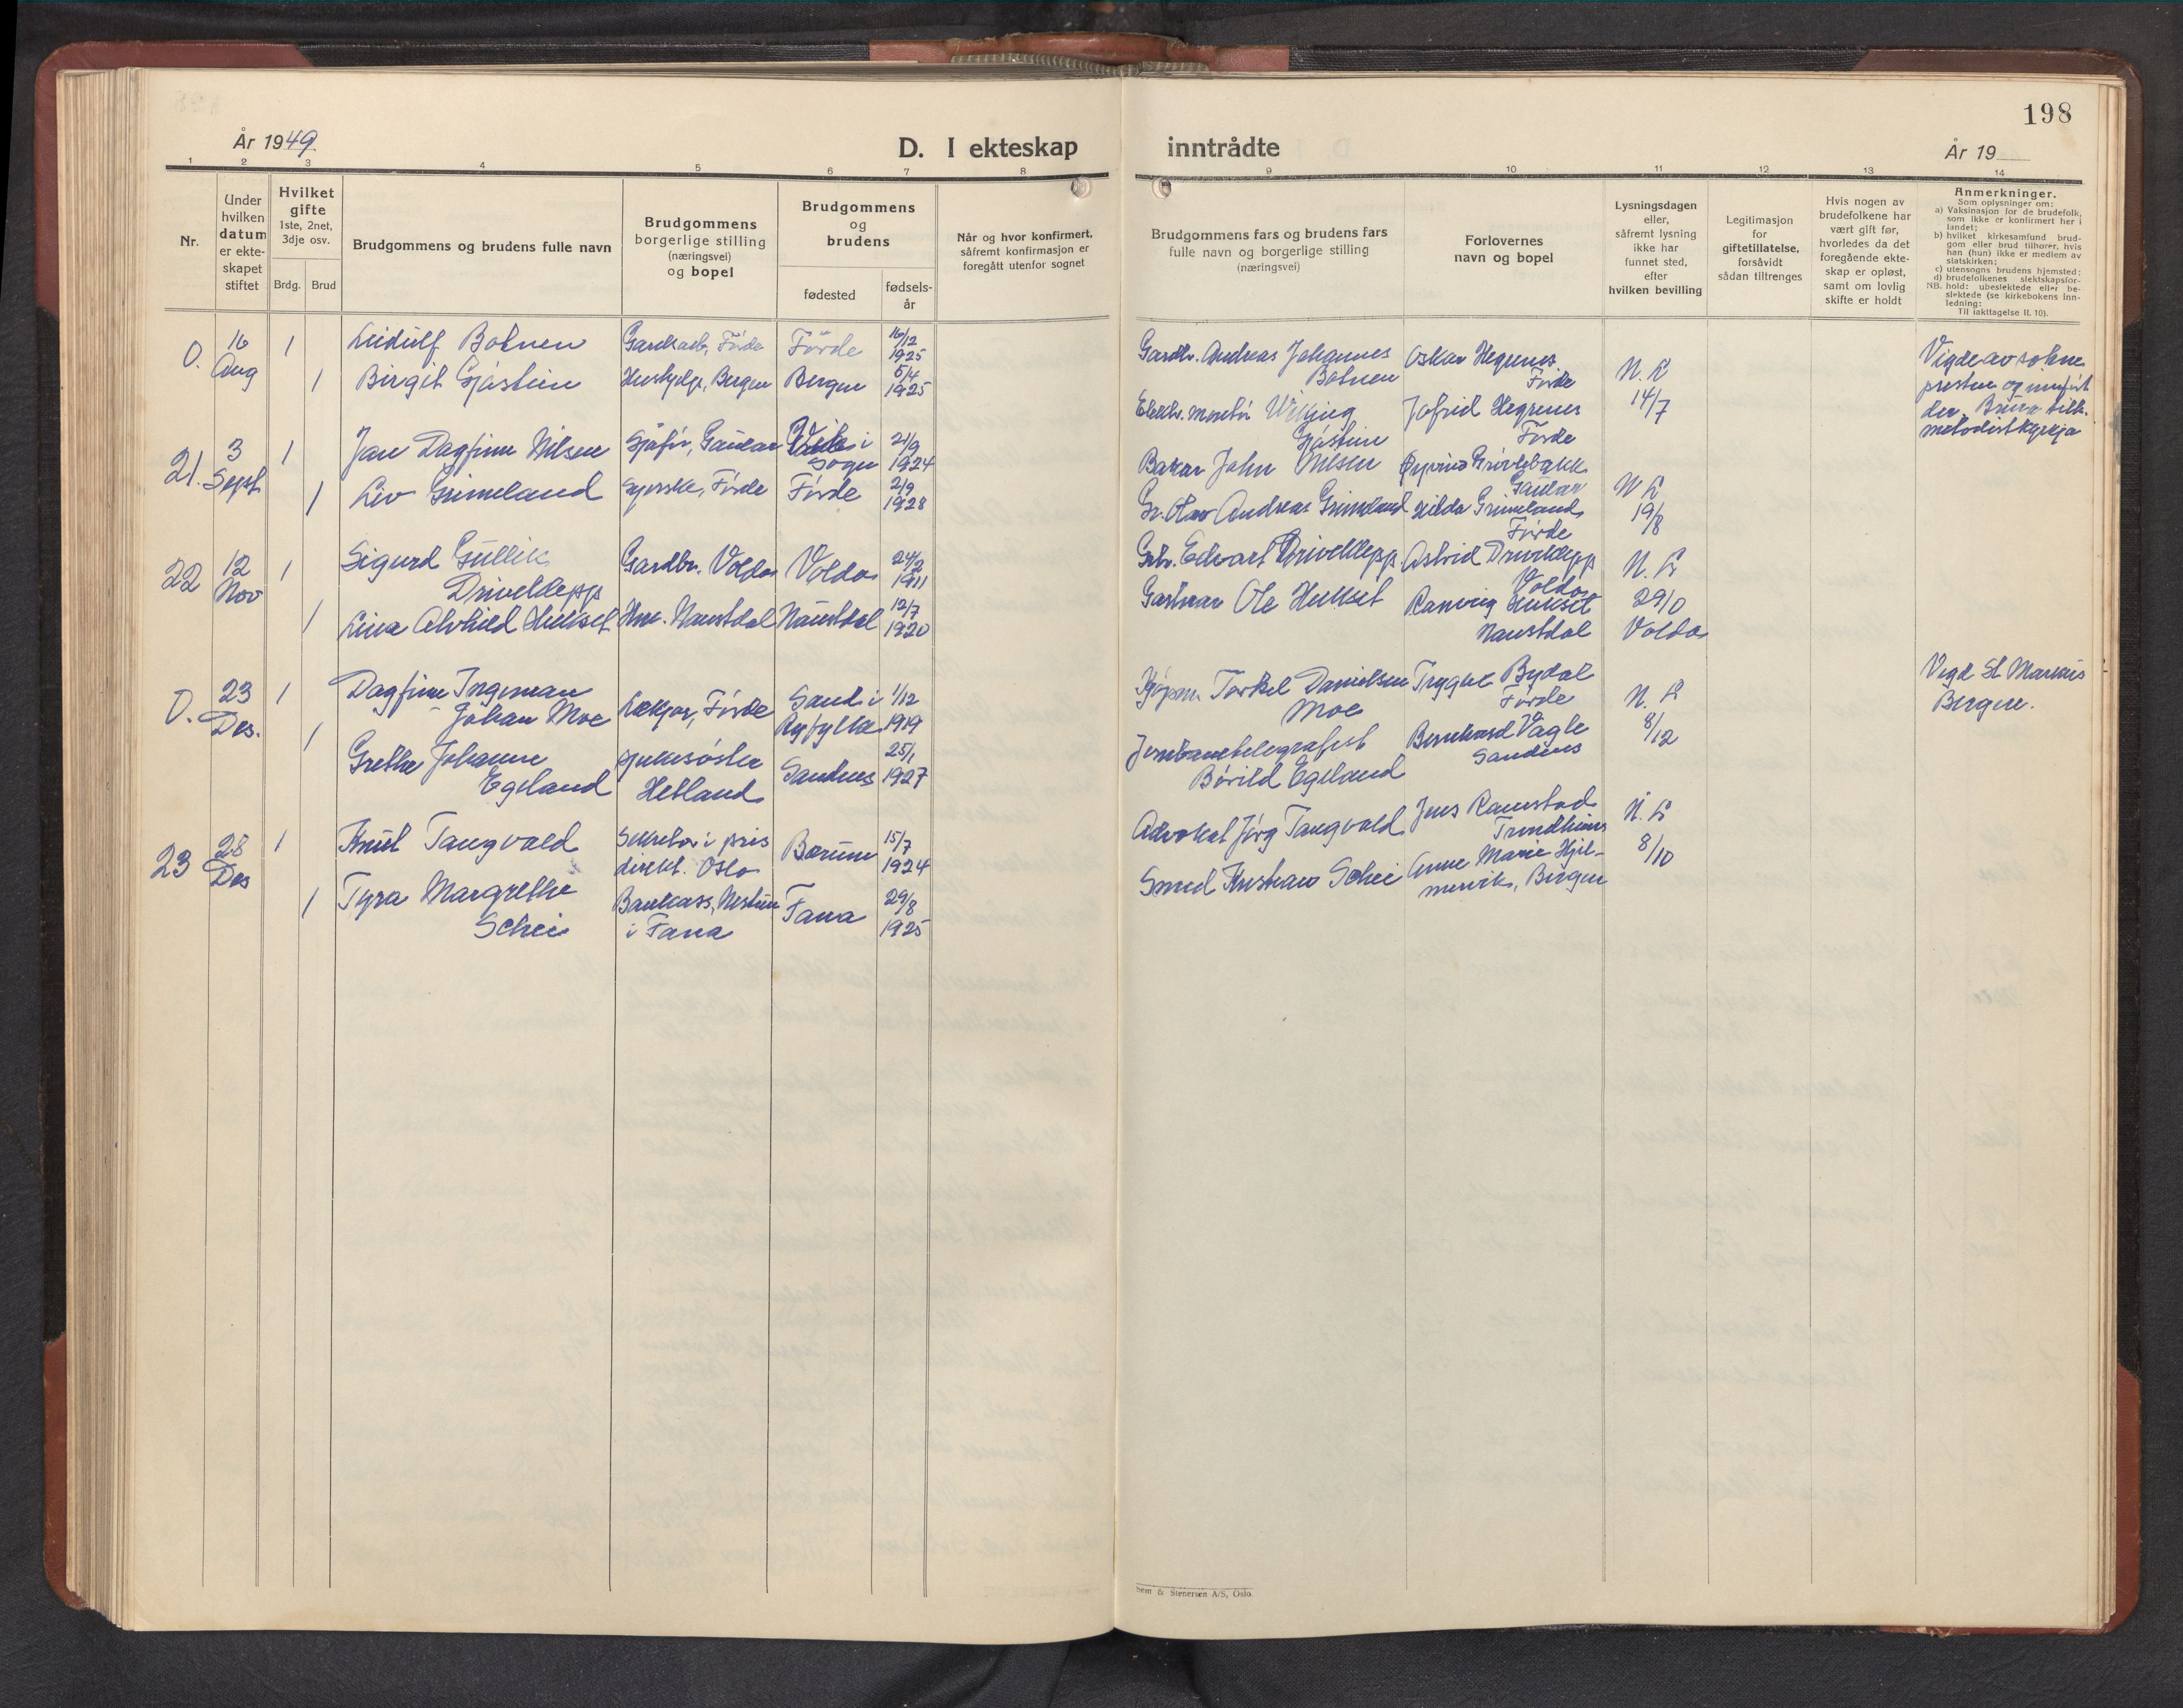 198
År 1949.
D. I ekteskap inntrådte
År 19
1 2 3 4 5 6 7 8 9 10 11 12 13 14
Nr.
Under
hvilken
datum
er ekte-
skapet
stiftet
Hvilket
gifte
1ste, 2net,
3dje osv.
Brdg. Brud
Brudgommens og brudens fulle navn
Brudgommens
borgerlige stilling
(næringsvei)
og bopel
Brudgommens
og
brudens
fødested
fødsels-
år
Når og hvor konfirmert,
såfremt konfirmasjon er
foregått utenfor sognet
Brudgommens fars og brudens fars
fulle navn og borgerlige stilling
(næringsvei)
Forlovernes
navn og bopel
Lysningsdagen
eller,
såfremt lysning
ikke har
funnet sted,
efter
hvilken bevilling
Legitimasjon
for
giftetillatelse,
forsåvidt
sådan tiltrenges
Hvis nogen av
brudefolkene har
vært gift før,
hvorledes da det
foregående ekte-
skap er opløst,
samt om lovlig
skifte er holdt
Anmerkninger.
Som oplysninger om:
a) Vaksinasjon for de brudefolk,
som ikke er konfirmert her i
landet;
b) hvilket kirkesamfund brud-
gom eller brud tilhører, hvis
han (hun) ikke er medlem av
statskirken;
c) utensogns brudens hjemsted;
d) brudefolkenes slektskapsfor-
NB. hold: ubeslektede eller be-
slektede (se kirkebokens Inn-
ledning:
Til iakttagelse II. 10).
0. 16 Aug 1 Leidulf Botnen Gardsarb, Førde Førde 16/12 1925
1 Birgit Gjåstein Hushjelp, Bergen Bergen 5/4 1925
Gardbr. Andreas Johannes
Botnen
Elektr. montør
Gjåstein
Oskar Hegrenes
Førde
Jofrid Hegrenes
Førde
N. K
14/7
Vigde av sokne
presten og
metodistkyrkja
21. 3 Sept 1 Jan Dagfinn Nilsen Sjåfør, Gaular i Sogn 21/9 1924
1 Liv Grimeland Syerske, Førde Førde 2/9 1928
Bakar John Nilsen
Gr. Olav Andreas Grimeland
Øyvind
Gaular
Hilda Grimeland
Førde
N K
19/8
22 12 Nov 1 Sigurd Gullik
Driveklepp
Gardbr. Volda Volda 24/2 1911
1 Lina Alvhild Hukset Hm. Naustdal Naustdal 12/7 1920
Gbr. Edvart Driveklepp
Gartnar Ole Hukset
Astrid Driveklepp
Volda
Ranveig Hukset
Naustdal
N. K
29/0
Volda
0. 23 Des. 1 Dagfinn Ingeman
Johan Moe
Lækjar, Førde Sand i
Ryfylke 1/12 1919
1 Grethe Johanne
Egeland
sjukesøster
Hetland
Sandnes 25/1 1927
Kjøpm. Torkel Danielsen
Moe
Jernbanetelegrafist
Børild Egeland
Trygve Bydal
Førde
Bernhard Vagle
Sandnes
N. K
8/12
Vigd St Markus
Bergen.
23 28 Des 1 Knut Tangvald
Sekretær i pris
direkt. Oslo
Bærum 15/7 1924
1 Tyra Margrethe
Schei
Bankass, Nestun
i Fana
Fana 29/8 1925
Advokat Jørg Tangvald
Smed Kristian Schei
Jens Ramstad
Trondheim
Anne Marie Hjel-
mervik, Bergen
N. K
8/10
Sem & Stenersen A/S, Oslo.